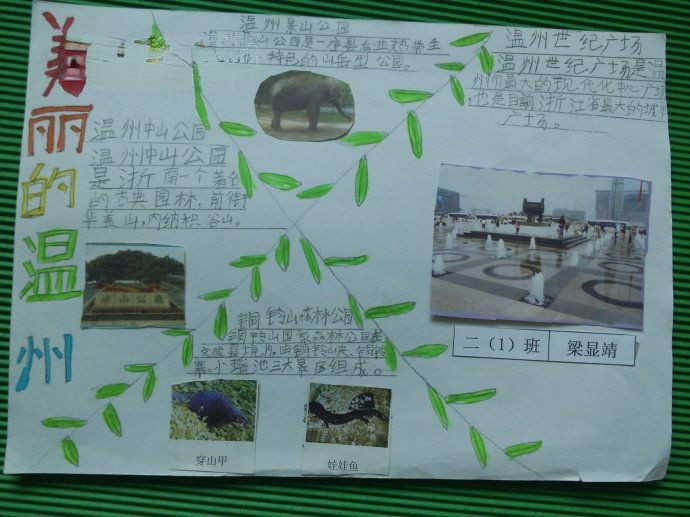 美丽的温州
温州景山公园
温州景山公园是一座具有亚热带生
特色的山岳型公园。
温州世纪广场
温州世纪广场是温
州市最大的现代化中心广场
也是目前浙江省最大的城市
广场。
温州中山公园
温州中山公园
是浙南一个著名
的古典园林,前衔
华盖山,内纳积谷山。
铜铃山森林公园
铜铃山国家森林公园在
文成县境内,由铜铃山夹、铜铃
寨、小瑶池三大景区组成。
二(1)班 梁显靖
穿山甲
娃娃鱼